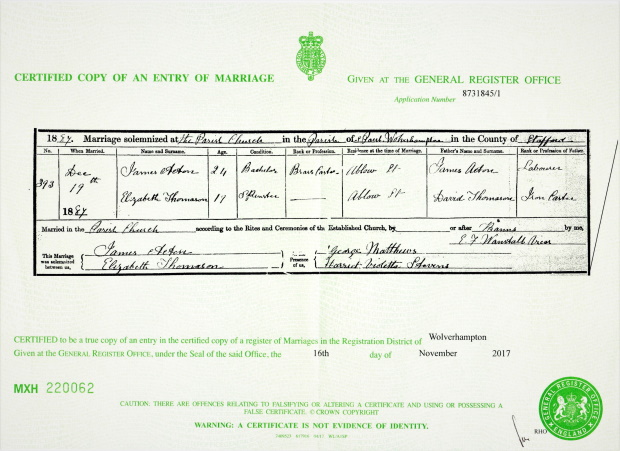 CERTIFIED COPY OF AN ENTRY OF MARRIAGE
GIVEN AT THE GENERAL REGISTER OFFICE
Application Number 8731845/1
1887. Marriage solemnized at the Parish Church in the Parish of St Paul Wolverhampton in the County of Stafford
No. When Married. Name and Surname. Age. Condition. Rank or Profession. Residence at the time of Marriage. Father's Name and Surname. Rank or Profession of Father.
393 Dec 19th 1887
James Acton 24 Bachelor Brass Caster Ablow St James Acton Labourer
Elizabeth Thomason 17 Spinster Ablow St David Thomason Iron Caster
Married in the Parish Church according to the Rites and Ceremonies of the Established Church, by or after Banns by me,
E. F. Vicar
This Marriage was solemnized between us, James Acton
Elizabeth Thomason
in the Presence of us, George Matthews
Harriet Violetta Stevens
CERTIFIED to be a true copy of an entry in the certified copy of a register of Marriages in the Registration District of Wolverhampton
Given at the GENERAL REGISTER OFFICE, under the Seal of the said Office, the 16th day of November 2017
MXH 220062
CAUTION: THERE ARE OFFENCES RELATING TO FALSIFYING OR ALTERING A CERTIFICATE AND USING OR POSSESSING A
FALSE CERTIFICATE. © CROWN COPYRIGHT
WARNING: A CERTIFICATE IS NOT EVIDENCE OF IDENTITY.
RHO
GENERAL REGISTER OFFICE
ENGLAND